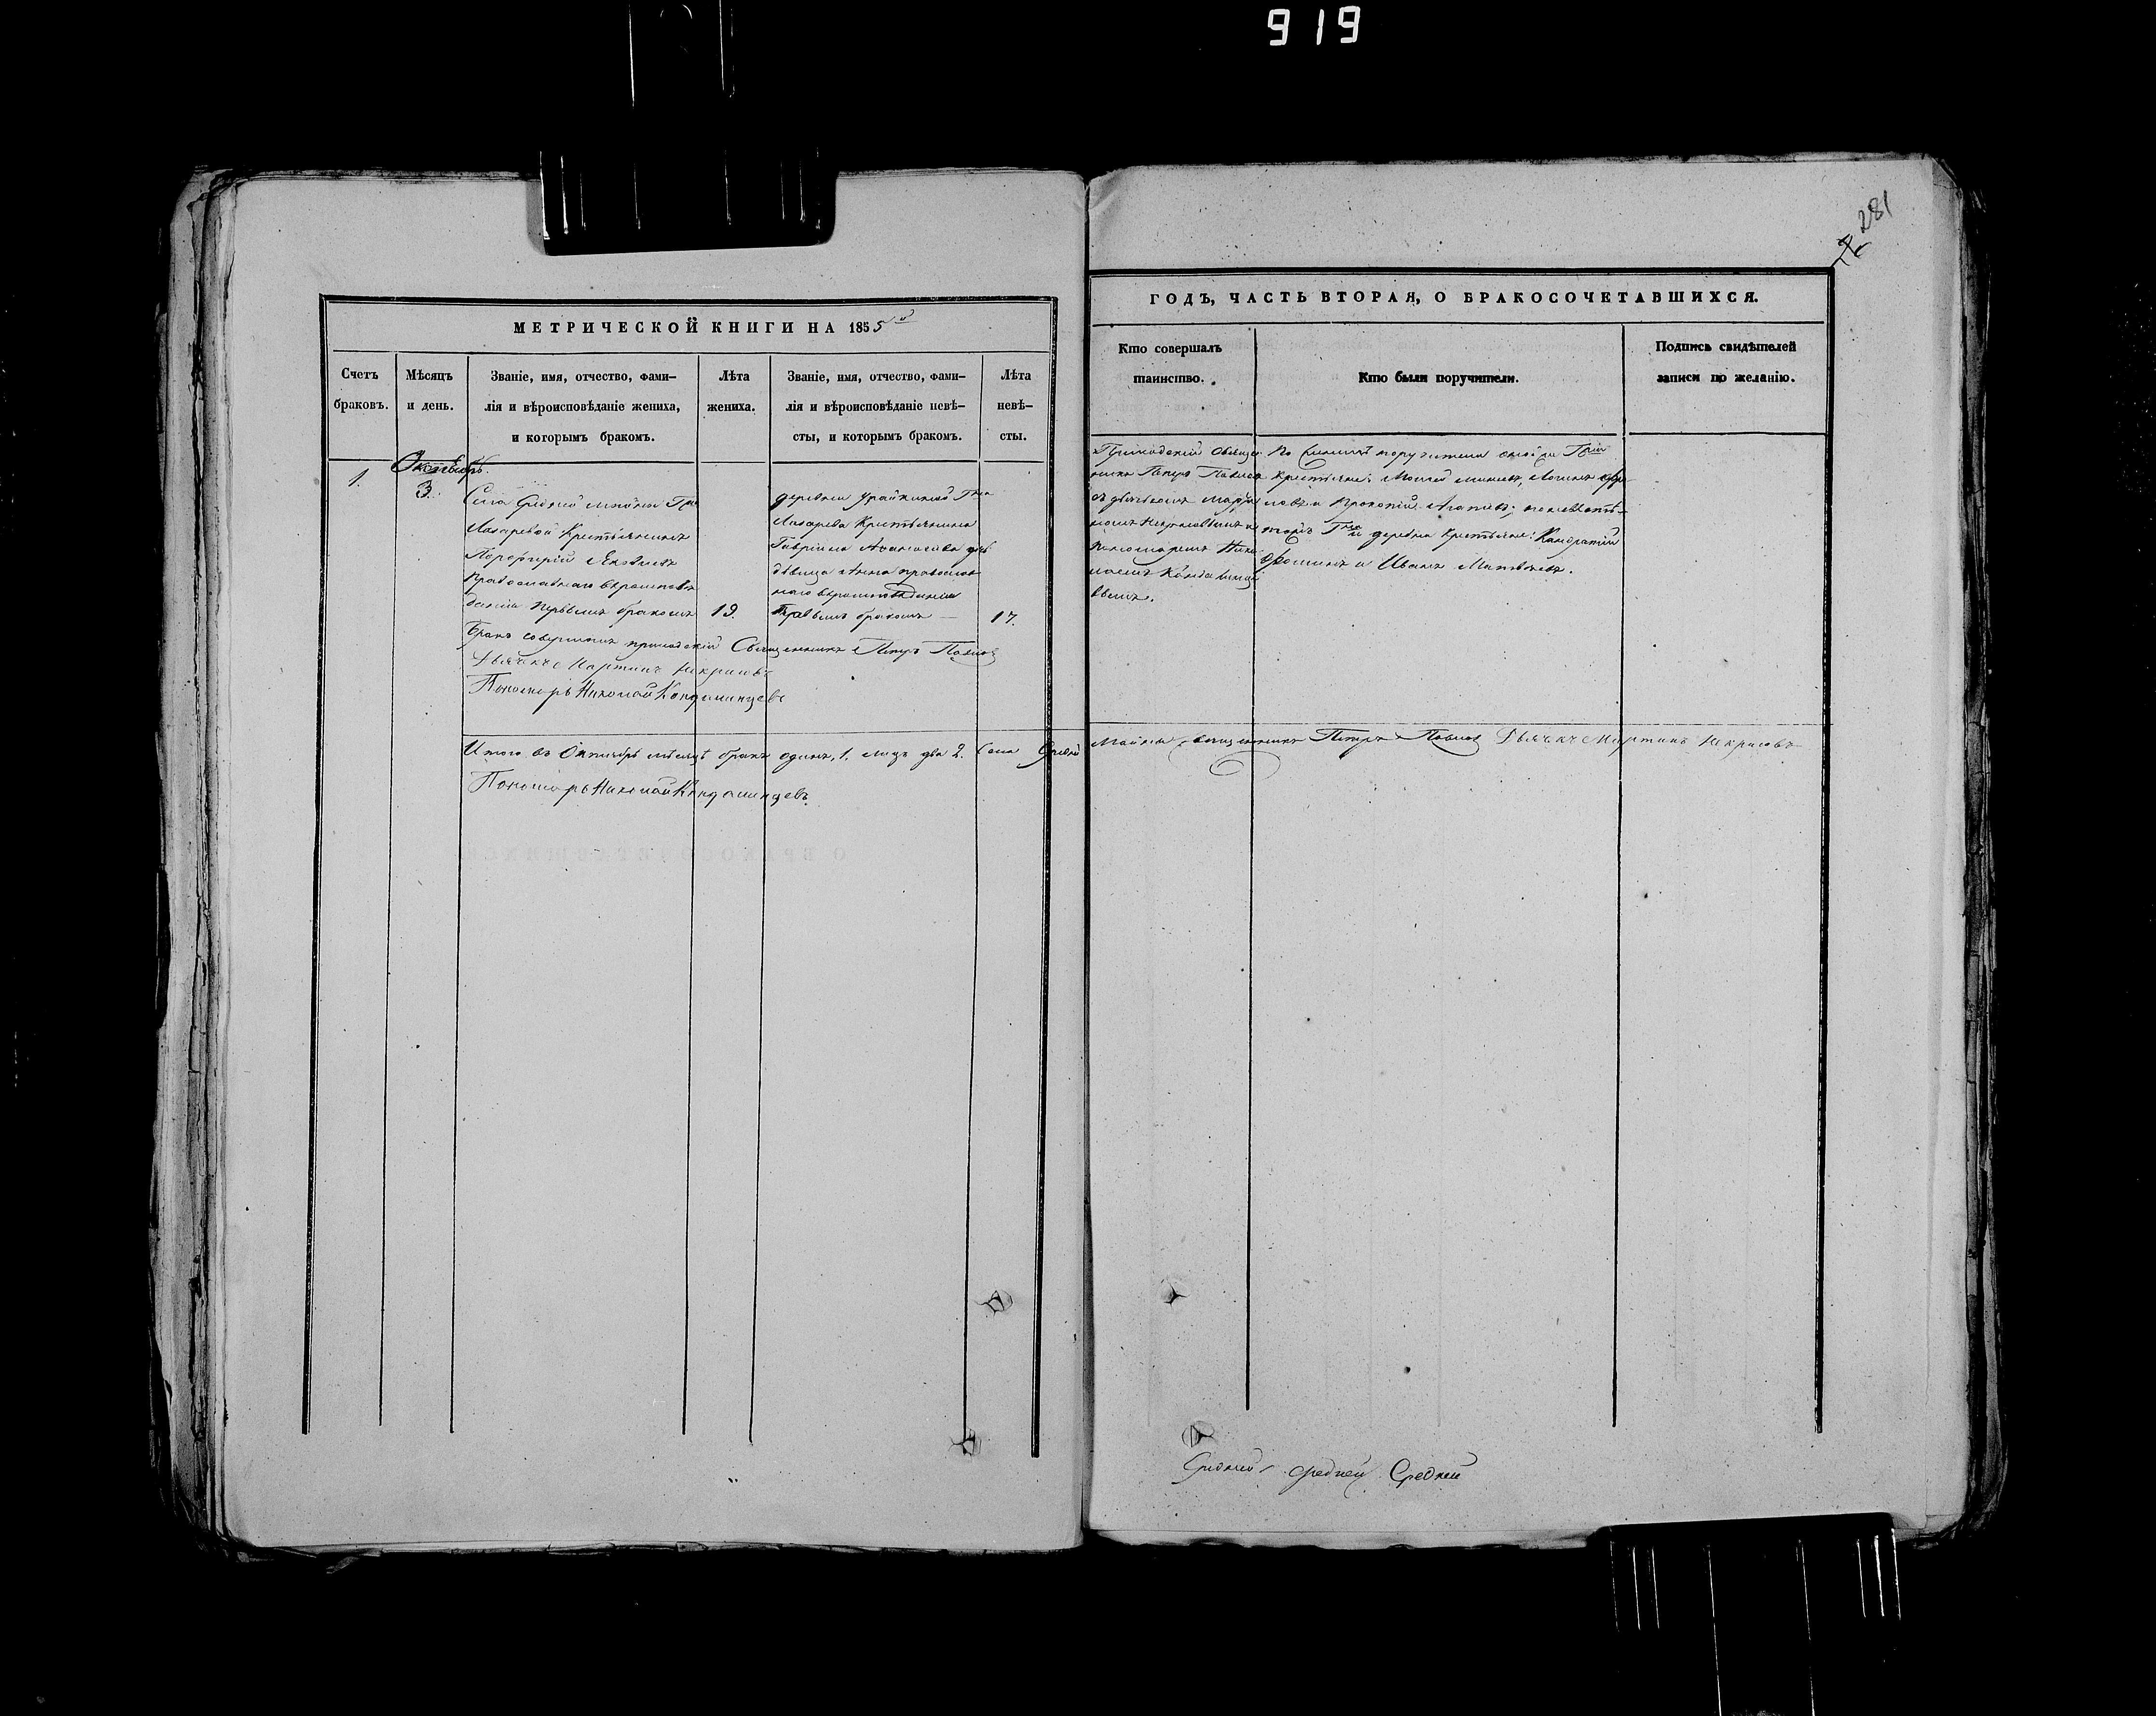 919
281
МЕТРИЧЕСКОЙ КНИГИ НА 1855й
ГОДЪ, ЧАСТЬ ВТОРАЯ, О БРАКОСОЧЕТАВШИХСЯ.
Счетъ
браковъ.
Мѣсяцъ
и день.
Званіе, имя, отчество, фами-
лія и вѣроисповѣданіе жениха,
и которымъ бракомъ.
Лѣта
жениха.
Званіе, имя, отчество, фами-
лія и вѣроисповѣданіе невѣ-
сты, и которымъ бракомъ.
Лѣта
невѣ-
сты.
Кто совершалъ
таинство.
Кто были поручители.
Подпись свидѣтелей
записи по желанію.
1.
Октябрь.
3.
Села Средней Майны Гжи
Лазаревой Крестьянинъ
Порфирій Яковлевъ
Православнаго вѣроисповѣ
данія первымъ бракомъ
19.
деревни Урайкиной Гжи
Лазарева Крестьянина
Гавриила Афанасьева дочь
дѣвица Анна православ
наго вѣроисповѣданія
Первымъ бракомъ
17.
Приходскій Священ
никъ Петръ Павлов
съ дьячкомъ Марти
номъ Некрасовымъ и
Пономаремъ Нико
лаемъ Кандалинце
вымъ.
По женихѣ поручители
крестьяне: Моисей
и Прокопій
Гжи деревни Крестьяне: Кондратій
Фоминъ и Иванъ Матвѣевъ.
Бракъ совершилъ приходскій Священникъ Петръ Павлов
Дьячекъ Мартинъ Некрасовъ
Пономарь Николай Кандалинцевъ
Итого въ Октябрѣ мѣсяцѣ бракъ одинъ, 1. лицъ два 2. Села Средней Майны Священникъ Петръ Павлов Дьячекъ Мартинъ Некрасовъ
Пономарь Николай Кандалинцевъ.
Средней средней Средней